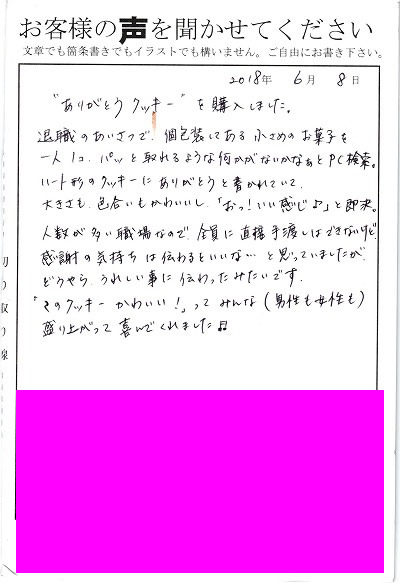 お客様の声を聞かせてください
文章でも箇条書きでもイラストでも構いません。ご自由にお書き下さい。
2018年 6月 8日
"ありがとうクッキー"を購入しました。
退職のあいさつで、個包装してある小さめのお菓子を
一人1コ、パッと取れるような何かがないかなぁとPC検索。
ハート形のクッキーにありがとうと書かれていて、
大きさも、色合いもかわいいし、「おっ!いい感じ♪」と即決。
人数が多い職場なので、全員に直接手渡しはできないけど
感謝の気持ちは伝わるといいな と思っていましたが、
どうやら、うれしい事に伝わったみたいです。
「このクッキーかわいい!」って みんな(男性も女性も)
盛り上がって 喜んでくれました♬
切り取り線